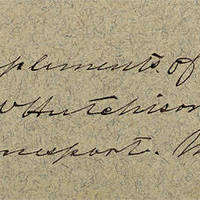 plements of
W Hutchison
nesport. M